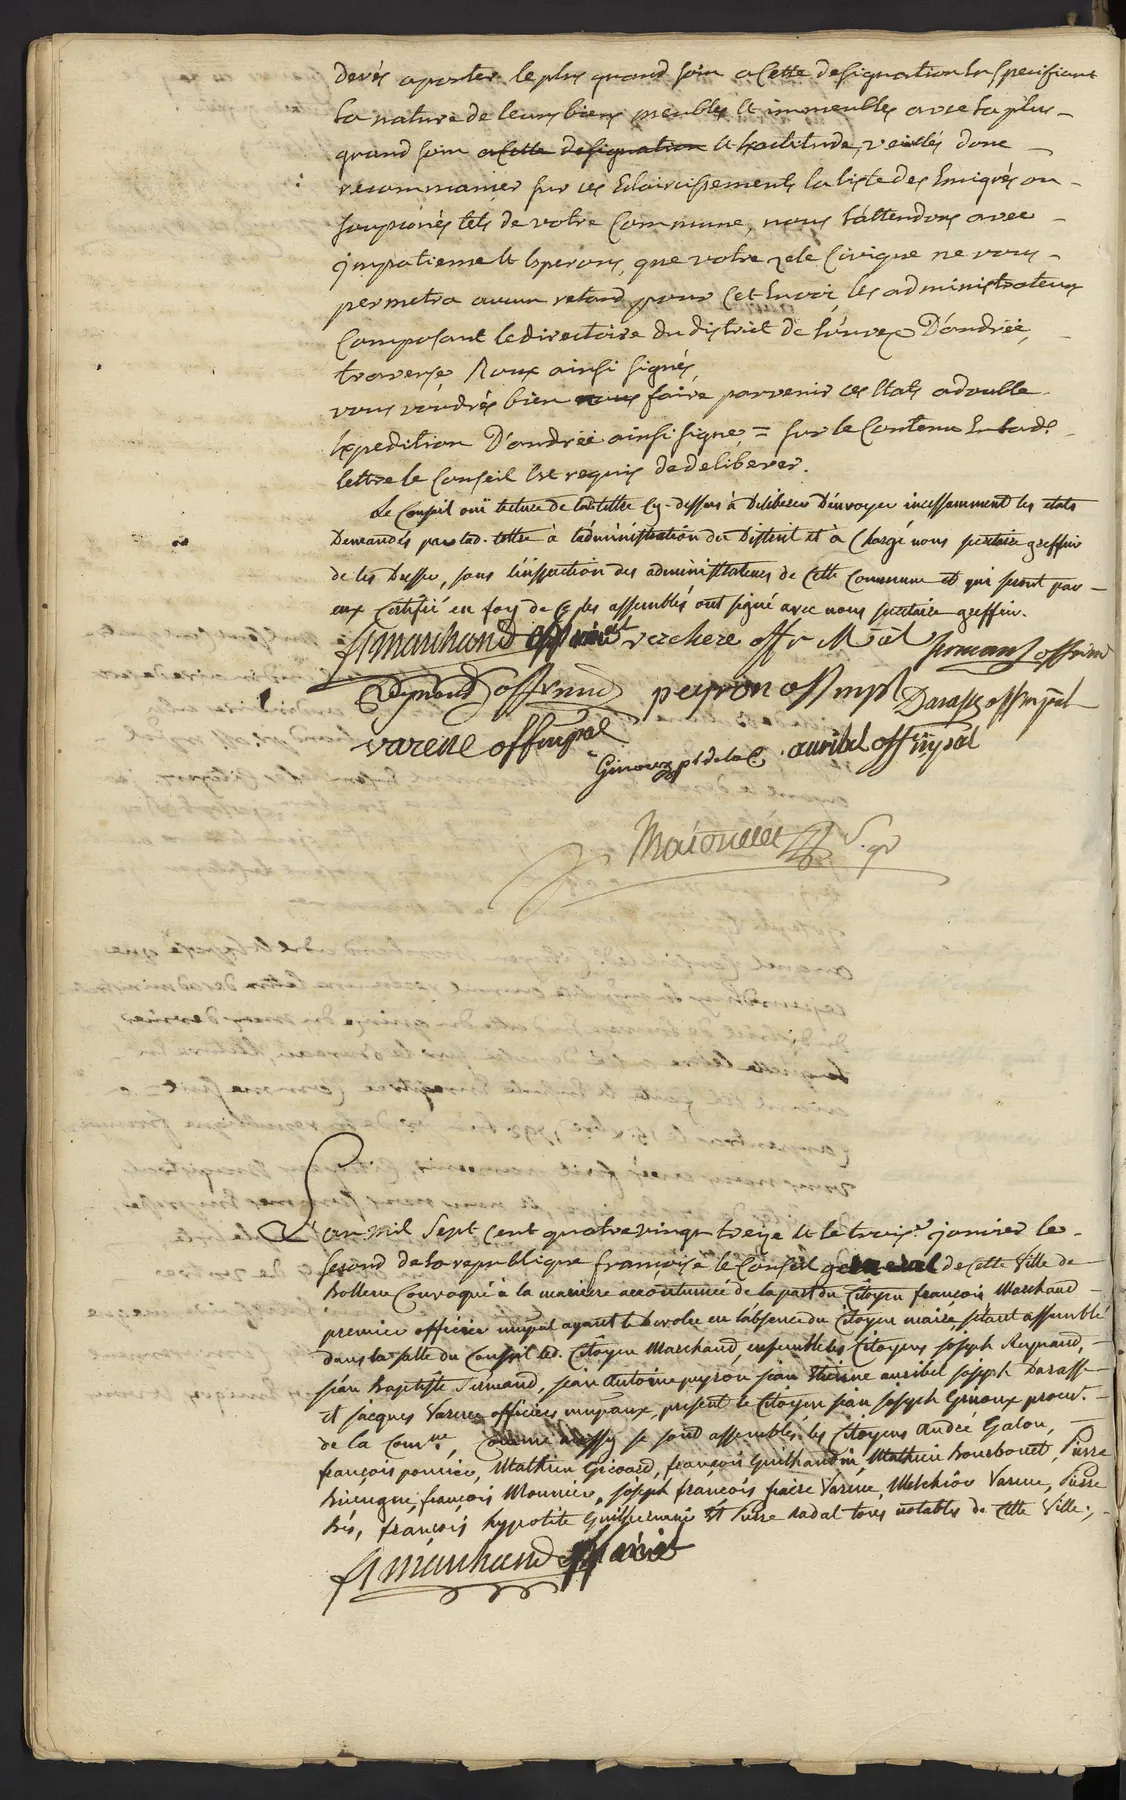 devés aporter le plus grand soin a Cette designation En specifiant
la nature de leurs biens meubles et immeubles avec la plus
grand soin a Cette designation et Exactitude, veillés donc
recommanier sur ces Eclaircissements la liste des Emigrés ou
soupsonés tels de votre Commune, nous l'attendons avec
jmpatience et Esperons, que votre zele Civique ne vous
permetra aucun retard pour Cet Envoi, les administrateurs
Composant le directoire du district de Louveze D'andrée,
traverse Roux ainsi signés,
vous voudrés bien nous faire parvenir ces Etats a double
Expedition D'andrée ainsi signe = sur le Contenu En lade.
lettre le Conseil Est requis de deliberer.
Le Conseil oüi lecture de lad. lettre Cy-dessus à Deliberer D'envoyer incessamment les etats
Demandés par lad. lettre à l'administration du District et à Chargé nous secretaire greffier
de les Dresser, sous l'inspection des administrateurs de Cette Commune et qui seront par
eux Certifié en foy de Ce les assemblés ont signé avec nous secretaire greffier.
f marchand off mipal verchere off r M al sirmand off mip
Reynaud off mip peyron off mpl Darasse off mpal
varene off mpal
Ginoux pr de la C. auribel off mpal
S. gr
L'an mil Sept Cent quatre vingt treize et le trois.e janvier le
second de la republique françoise le Conseil general de Cette Ville de
Bollene Convoqué à la maniere accoutumée de la part du Citoyen françois Marchand
premier officier mupal ayant le Devolu en l'absence du Citoyen maire s'étant assemblé
dans la salle du Conseil led. Citoyen Marchand, ensemble les Citoyens joseph Reynaud,
jean Baptiste Sirmand, jean Antoine peyron jean Etienne auribel joseph Darasse
et jacques Varene officiers mupaux, présent le Citoyen jean joseph Ginoux procur.
de la Com.ne, Comme aussy se sont assemblés les Citoyens André Galou,
françois pounier, Mathieu Gicoard, françois Guilhaudin, Mathieu Bourbouet, Pierre
françois Mounier, joseph françois fraise Varene, Melchior Varene, Pierre
Bés, françois hypolite Guilhermin Et Pierre Radal tous notables de Cette Ville,
f marchand off mipal